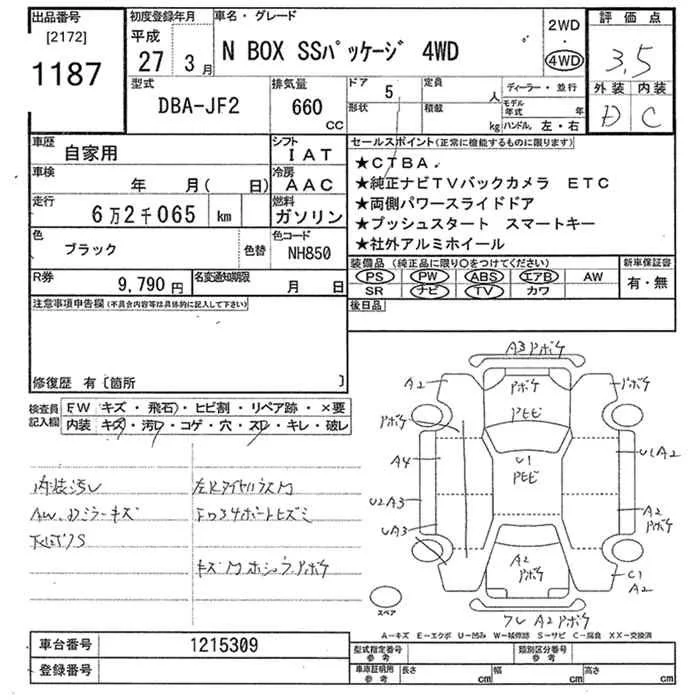 出品番号
[2172]
1187
初度登録年月
平成
27 3月
車名・グレード
N BOX SSパッケージ 4WD
2WD
・
4WD
評価点
3.5
外装 内装
D C
型式
DBA-JF2
排気量
660
CC
ドア 5
形状
定員 人
積載 kg
ディーラー・並行
モデル年式 年
ハンドル. 左・右
車歴 自家用
シフト IAT
車検 年 月( 日)
冷房 AAC
走行 6万2千065 km
燃料 ガソリン
色 ブラック 色替
色コード NH850
R券 9,790円
名変通知期限 月 日
セールスポイント(正常に機能するものに限ります)
★CTBA
★純正ナビTVバックカメラ ETC
★両側パワースライドドア
★プッシュスタート スマートキー
★社外アルミホイール
装備品 (純正品に限り○をつけてください)
PS PW ABS エアB AW
SR ナビ TV カワ
新車保証書
有・無
後日品
注意事項申告欄(不具合内容等は具体的に記入して下さい)
修復歴 有〔箇所 〕
検査員記入欄
FW キズ・飛石・ヒビ割・リペア跡・×要
内装 キズ・汚レ・コゲ・穴・スレ・キレ・破レ
内装汚レ
AW、Dミラーキズ
下廻サビ
キズ凹ホシュウアポキ
A3 アポキ
A2
アポキ
アポキ
アポキ
A4
U1
U1A2
U2A3
UA3
A2
アポキ
A2
アポキ
C1
A2
A2アポキ
スペア
A−キズ E−エクボ U−凹み W−補修跡 S−サビ C−腐食 XX−交換済
車台番号 1215309
登録番号
型式指定番号
参考
類別区分番号
参考
車庫証明用
参考
長さ cm
幅 cm
高さ cm